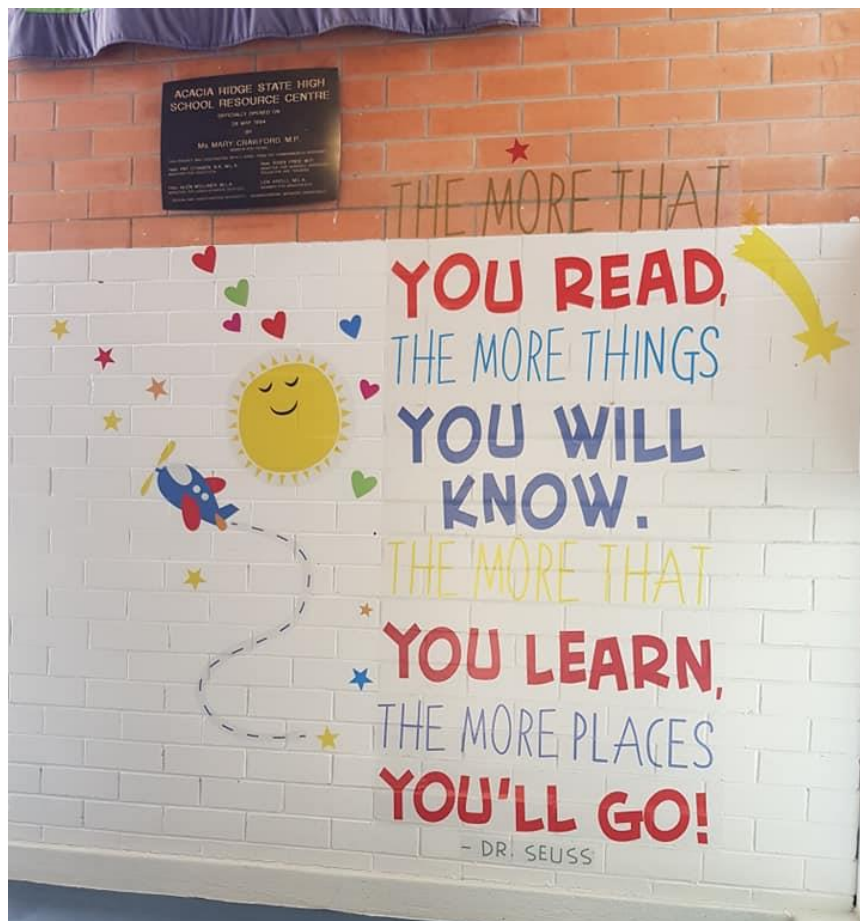 ACACIA RIDGE STATE HIGH
SCHOOL RESOURCE CENTRE
OFFICIALLY OPENED ON
BY
Ms MARY CRAWFORD M.P.
THE MORE THAT
YOU READ,
THE MORE THINGS
YOU WILL
KNOW.
THE MORE THAT
YOU LEARN,
THE MORE PLACES
YOU'LL GO!
- DR. SEUSS